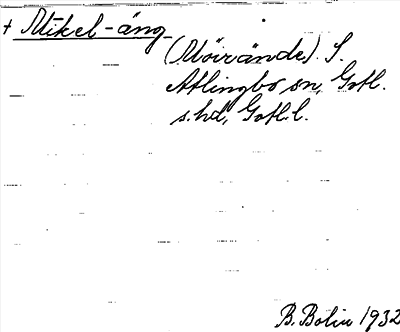 + Mikel-äng
(Möirände). S.
Atlingbo sn, Gotl.
s. hd, Gotl. l.
B. Bolin 1932